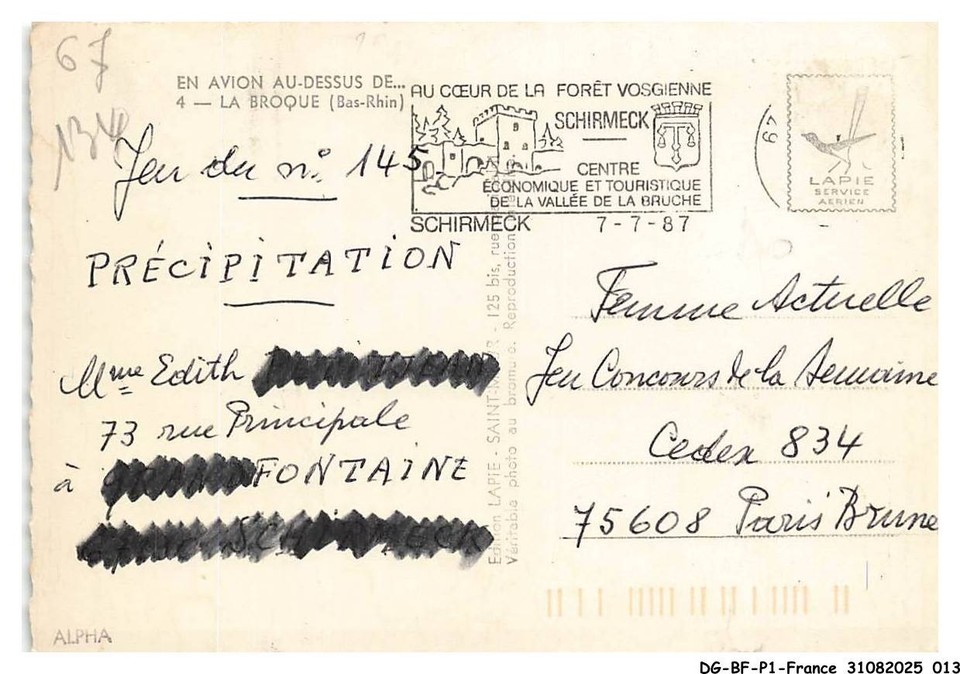 67
134
EN AVION AU-DESSUS DE...
4 — LA BROQUE (Bas-Rhin)
AU CŒUR DE LA FORÊT VOSGIENNE
SCHIRMECK
CENTRE
ÉCONOMIQUE ET TOURISTIQUE
DE LA VALLÉE DE LA BRUCHE
SCHIRMECK 7-7-87
67
LAPIE
SERVICE
AERIEN
Jeu du n° 145
PRÉCIPITATION
Mme Edith
73 rue Principale
à FONTAINE
Edition LAPIE - 125 bis, rue
Véritable photo au bromure. Reproduction
Femme Actuelle
Jeu Concours de la Semaine
Cedex 834
75608 Paris Brune
ALPHA
DG-BF-P1-France 31082025 013